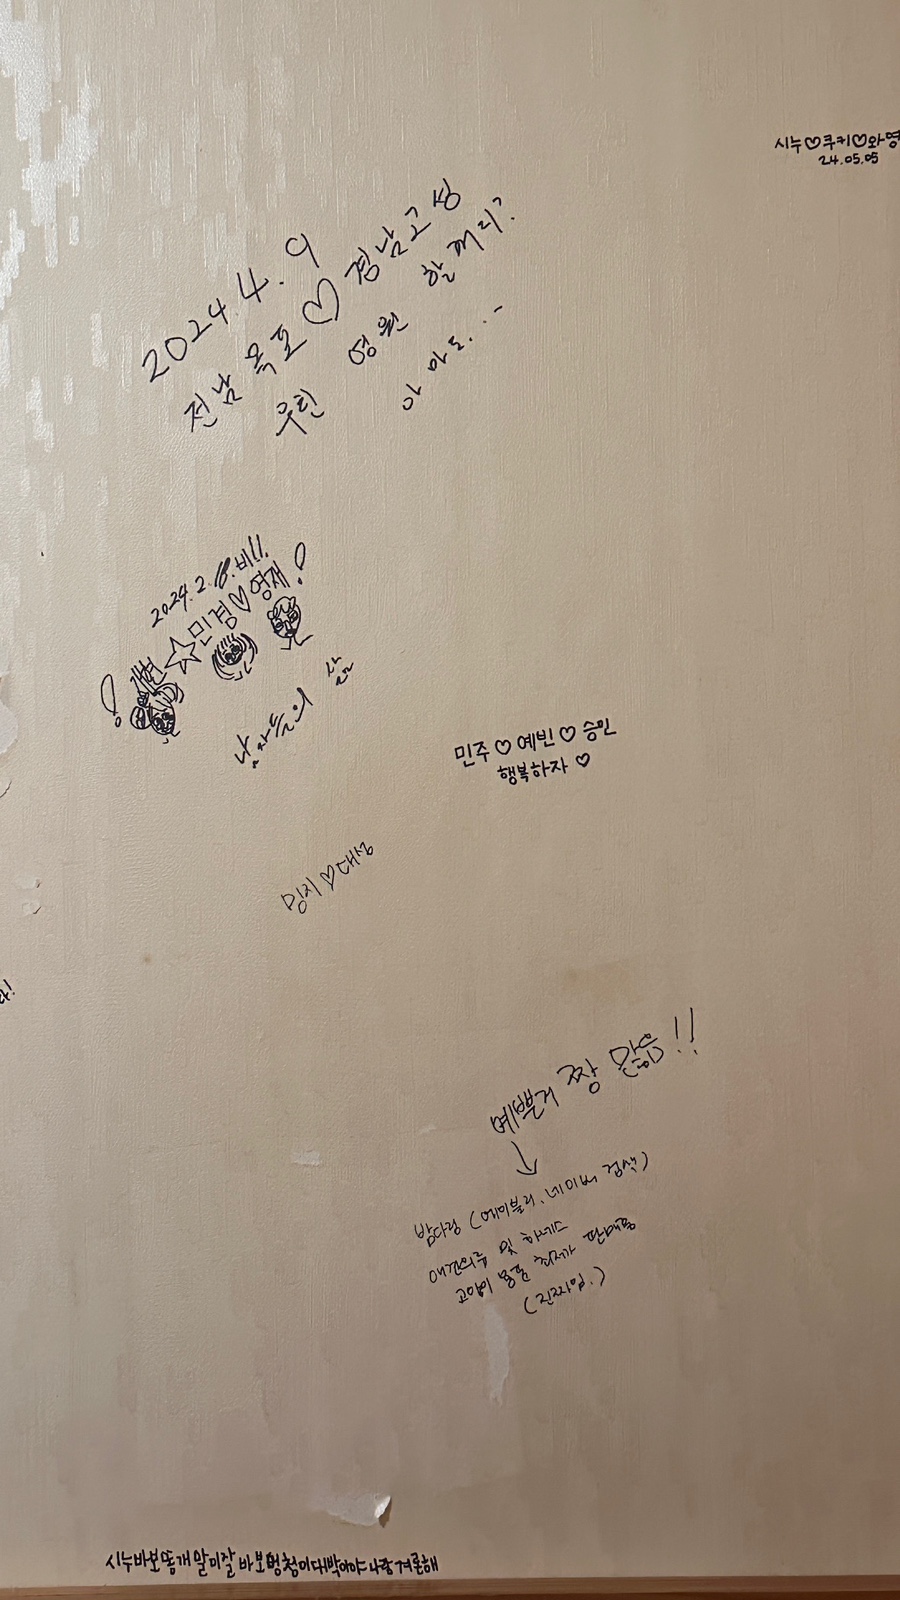 시누♡쿠키♡와
24.05.05
2024.4.9
전남 목포♡경남고성
우린 영원 할꺼리?
아마도...
2024.2.
☆민경♡영재!
낭자들의
민주♡예빈♡승민
행복하자♡
밍지♡대성
예쁜거 짱 많음!!
↓
밤다랑 (에이블리, 네이버 검색)
애견의류 및 하네스
고양이 용품 최저가 판매중
(진짜임.)
시누바보똥개말미잘 바보멍청이대박이야나랑겨론해